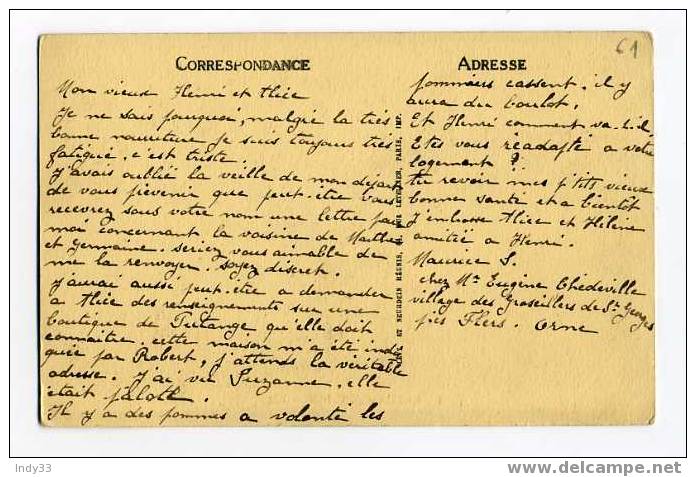 CORRESPONDANCE
Mon vieux Henri et Alice
Je ne sais pourquoi, malgré la très
bonne nourriture je suis toujours très
fatigué. c'est triste.
J'avais oublié la veille de mon départ
de vous prévenir que peut-être vous
recevrez sous votre nom une lettre pour
moi concernant la voisine de Marthe
et Germaine. seriez vous aimable de
me la renvoyer. soyez discret.
J'aurai aussi peut-être a demander
a Alice des renseignements sur une
boutique de qu'elle doit
connaître. cette maison m'a été indi-
quée par Robert, j'attends la véritable
adresse. J'ai vu Suzanne, elle
était pâlotte.
Il y a des pommes a volonté les
ADRESSE
61
pommiers cassent. il y
aura du boulot.
Et Henri comment va-t-il.
Etes vous réadapté a votre
logement ?
au revoir mes p'tits vieux
bonne santé et a bientôt
J'embrasse Alice et Hélène
amitié a Henri.
Maurice S.
chez Mr Eugène Chedeville
village des Groseillers de St Georges
près Flers. Orne
LEVY ET NEURDEIN RÉUNIS, 44, RUE LETELLIER, PARIS, IMP.
Indy33
delcampe.net